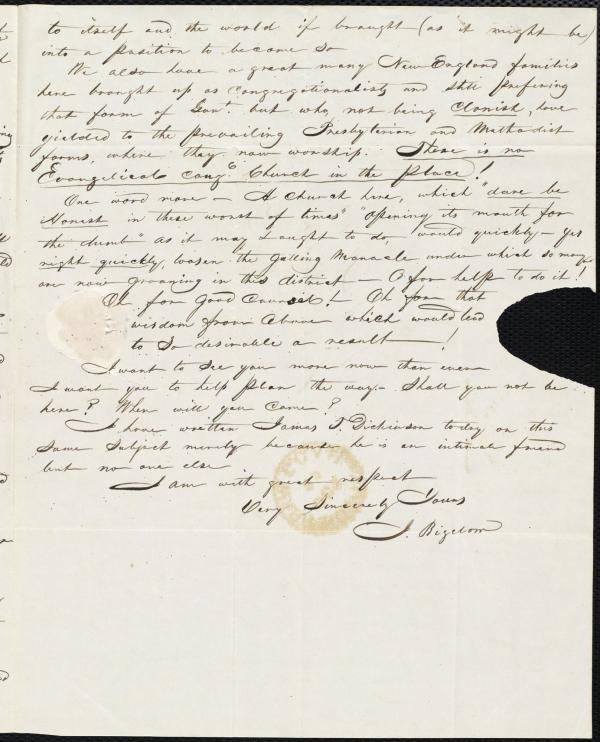 to itself and the world if brought (as it might be)
into a position to become so
We also have a great many New England families
here brought up as Congregationalists and still preferring
that form of Govt. but who, not being Clanish, have
yielded to the prevailing Presbyterian and Methodist
forms, where they now worship. There is no
Evangelical Congl. Church in the place!
One word more — A church here, which "dare be
Honest in these worst of times" "opening its mouth for
the dumb" as it may & ought to do, would quickly — yes
right quickly, loosen the galling Manacle under which so many
are now groaning in this district — O for help to do it!
Oh for good Counsel! — Oh for that
wisdom from above which would lead
to so desirable a result — !
I want to see you more now than ever
I want you to help plan the way. — Shall you not be
here? When will you come?
I have written James T. Dickinson today on this
same subject merely because he is an intimate friend
but no one else
I am with great respect
Very Sincerely Yours
J. Bigelow